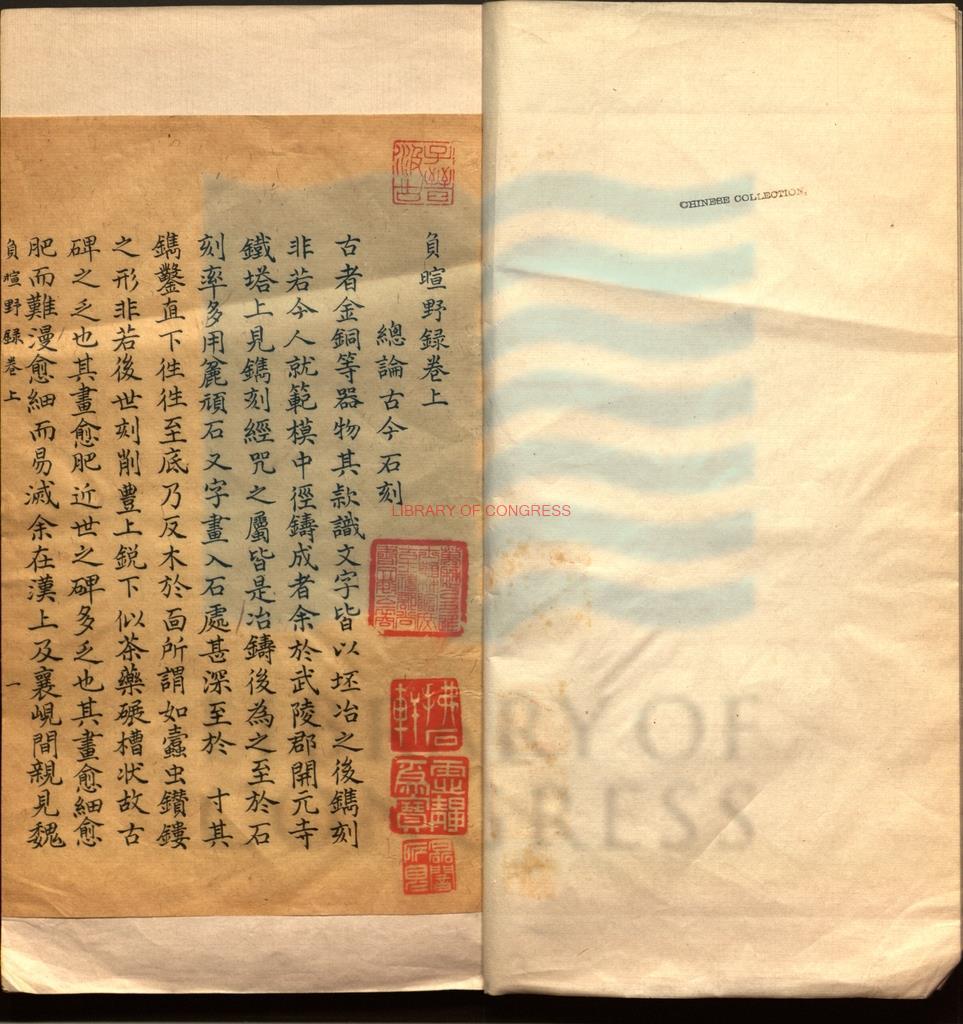 CHINESE COLLECTION.
負暄野錄卷上
總論古今石刻
古者金銅等器物其款識文字皆以坯冶之後鐫刻
非若今人就範模中徑鑄成者余於武陵郡開元寺
鐵塔上見鐫刻經咒之屬皆是冶鑄後為之至於石
刻率多用麄頑石又字畫入石處甚深至於 寸其
鐫鑿直下徃徃至底乃反木於面所謂如蠧虫鑽鏤
之形非若後世刻削豐上鋭下似茶藥碾槽状故古
碑之乏也其畫愈肥近世之碑多乏也其畫愈細愈
肥而難漫愈細而易滅余在漢上及襄峴間親見魏
負暄野錄卷上 一
子晉
汲古
拂石
軒
LIBRARY OF CONGRESS
LIBRARY OF CONGRESS